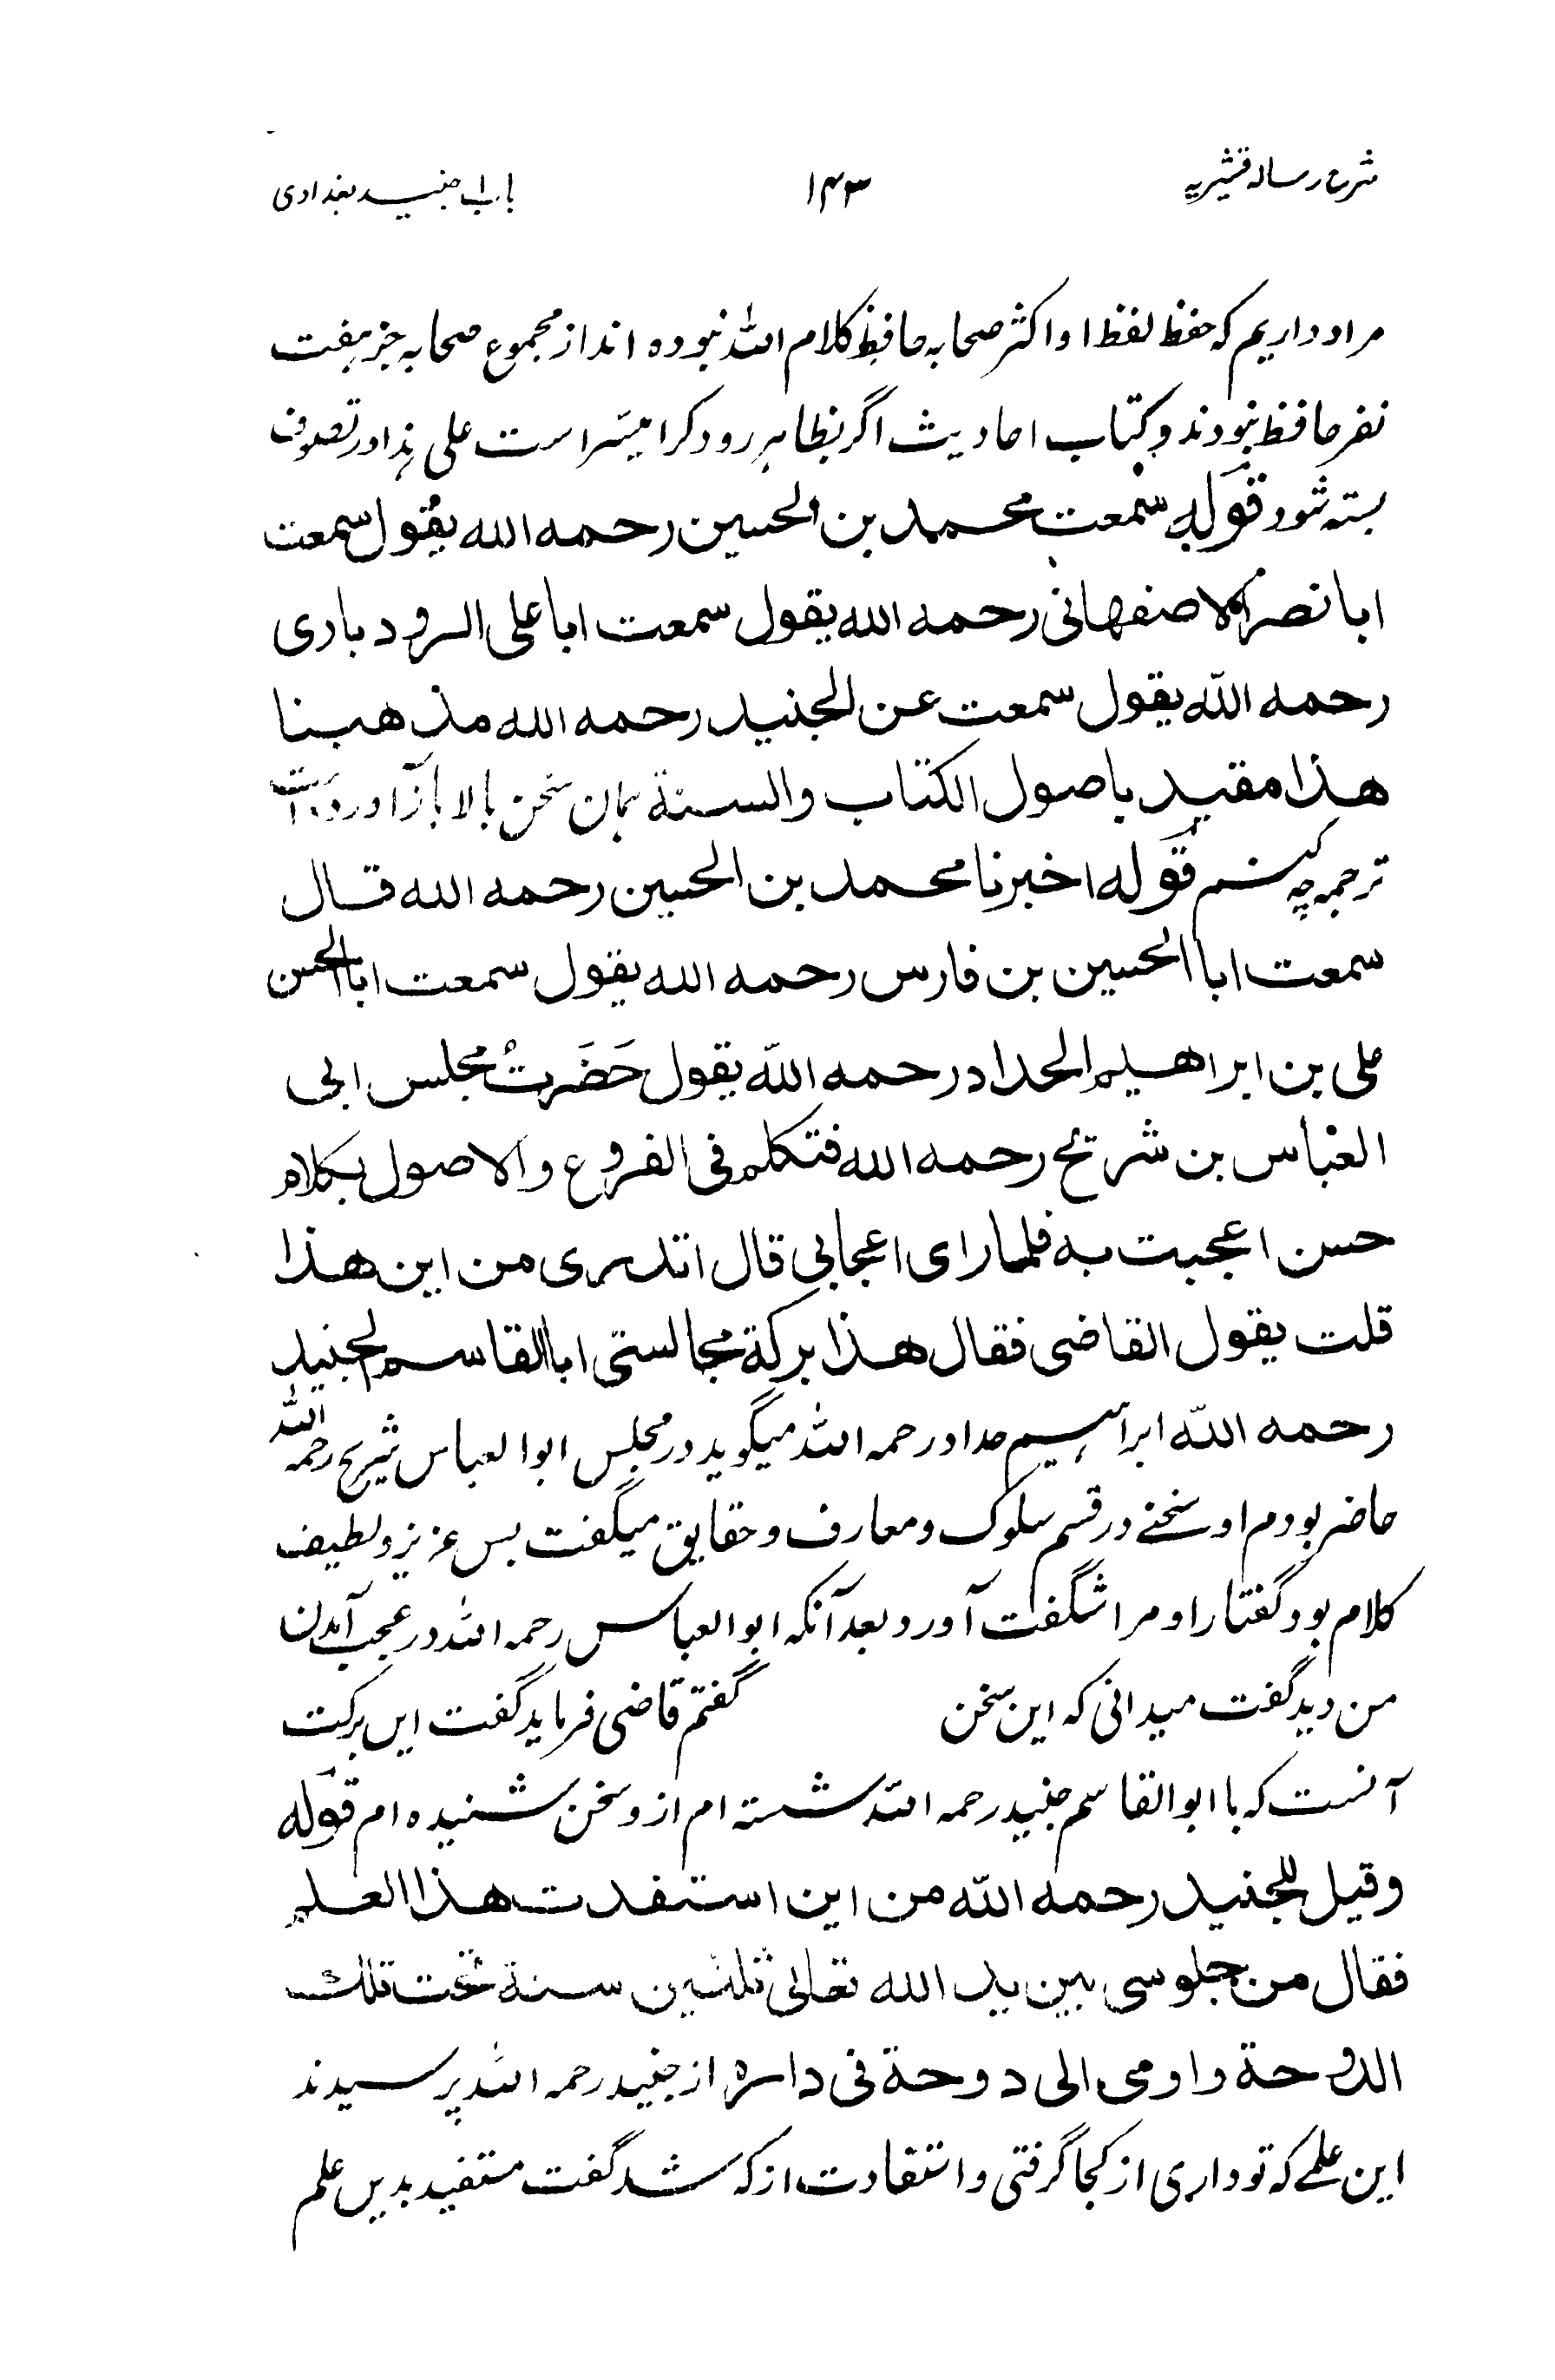 شرح رساله قشیریه ۱۴۳ باب جنید بغدادی
مراد داریم که حفظ لفظ او اکثر صحابه حافظ کلام الله نبوده اند از مجموع صحابه جز هفت
نفر حافظ نبودند و کتاب احادیث اگر بظاهر رود کرا میسّر است علی هذا در تصوف
بسته شود قوله سمعت محمد بن الحسین رحمه الله یقول سمعت
ابا نصر الاصفهانی رحمه الله یقول سمعت ابا علی الرودباری
رحمه الله یقول سمعت عن الجنید رحمه الله مذهبنا
هذا مقید باصول الکتاب والسنة همان سخن بالا باز آورده است
ترجمه چه کنیم قوله اخبرنا محمد بن الحسین رحمه الله قال
سمعت ابا الحسین بن فارس رحمه الله یقول سمعت ابا الحسن
علی بن ابراهیم الحداد رحمه الله یقول حَضَرتُ مجلس ابی
العباس بن شریح رحمه الله فتکلم فی الفروع والاصول بکلام
حسن اعجبت به فلما رای اعجابی قال اتدری من این هذا
قلت یقول القاضی فقال هذا برکة مجالستی ابا القاسم الجنید
رحمه الله ابراهیم حداد رحمه الله میگوید در مجلس ابو العباس شریح رحمه الله
حاضر بودم او سخنے در قسم سلوک و معارف و حقایق میگفت بس عزیز و لطیف
کلام بود گفتار او مرا شگفت آورد بعد آنکه ابو العباس رحمه الله در عجب آمدن
من دید گفت میدانی که این سخن گفتم قاضی فرماید گفت ایں برکت
آنست که با ابو القاسم جنید رحمه الله نشسته ام ازو سخن شنیده ام قوله
وقیل للجنید رحمه الله من این استفدت هذا العلم
فقال من جلوسی بین ید الله تعالی ثلثین سنة تحت تلک
الدوحة واومی الی دوحة فی داره از جنید رحمه الله پرسیدند
این علمے که تو داری از کجا گرفتی و استفادت از که شد گفت مستفید بدیں علم